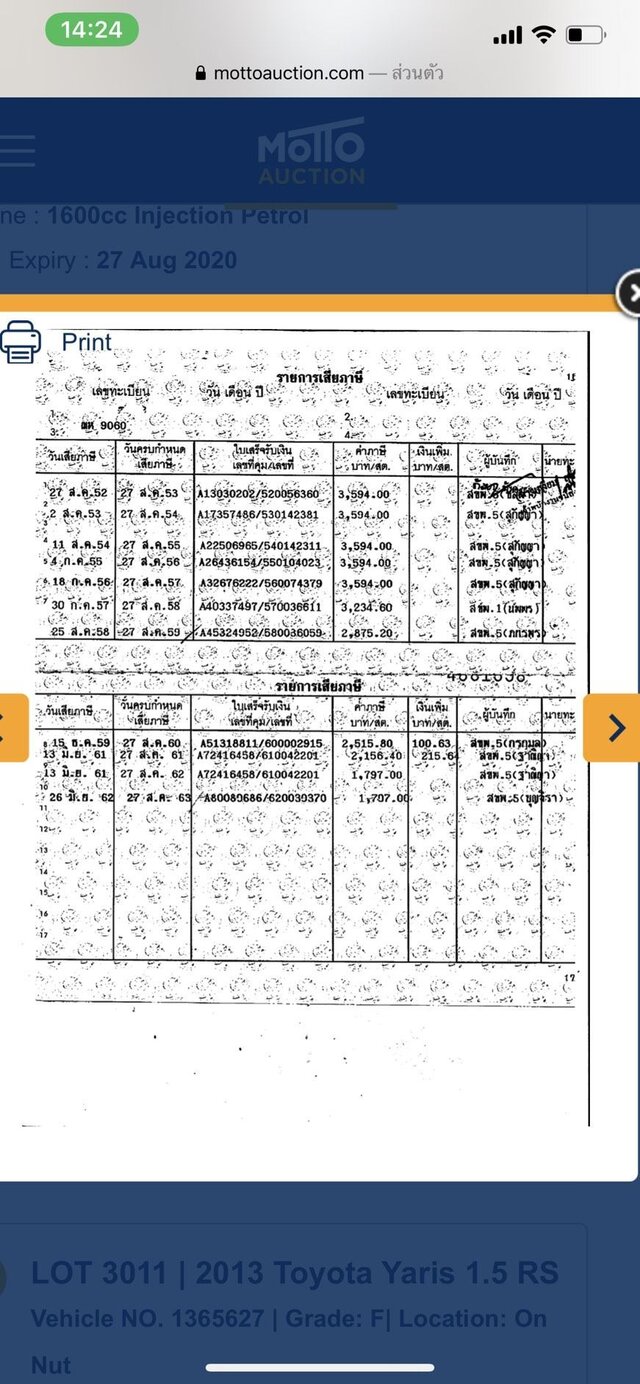 14:24
mottoauction.com — ส่วนตัว
MOTTO
AUCTION
ne : 1600cc Injection Petrol
Expiry : 27 Aug 2020
Print
รายการเสียภาษี
เลขทะเบียน วัน เดือน ปี เลขทะเบียน วัน เดือน ปี
1. 9060 2.
3. 4.
วันเสียภาษี วันครบกำหนดเสียภาษี ใบเสร็จรับเงิน เลขที่คุม/เลขที่ ค่าภาษี บาท/สต. เงินเพิ่ม บาท/สต. ผู้บันทึก นายทะ
27 ส.ค.52 27 ส.ค.53 A13030202/520056360 3,594.00
2 ส.ค.53 27 ส.ค.54 A17357486/530142381 3,594.00 สขพ.5(สุกัญญา)
11 ส.ค.54 27 ส.ค.55 A22506965/540142311 3,594.00 สขพ.5(สุกัญญา)
4 ก.ค.55 27 ส.ค.56 A26436154/550104023 3,594.00 สขพ.5(สุกัญญา)
18 ก.ค.56 27 ส.ค.57 A32676222/560074379 3,594.00 สขพ.5(สุกัญญา)
30 ก.ค.57 27 ส.ค.58 A40337497/570036611 3,234.60 สขพ.1(นัพพร)
25 ส.ค.58 27 ส.ค.59 A45324952/580036059 2,875.20 สขพ.5(ภกรพร)
รายการเสียภาษี
วันเสียภาษี วันครบกำหนดเสียภาษี ใบเสร็จรับเงิน เลขที่คุม/เลขที่ ค่าภาษี บาท/สต. เงินเพิ่ม บาท/สต. ผู้บันทึก นายทะ
15 ธ.ค.59 27 ส.ค.60 A51318811/600002915 2,515.80 100.63 สขพ.5(กรกมล)
13 มิ.ย. 61 27 ส.ค. 61 A72416458/610042201 2,156.40 215.64
13 มิ.ย. 61 27 ส.ค. 62 A72416458/610042201 1,797.00
26 มิ.ย. 62 27 ส.ค. 63 A80089686/620039370 1,797.00
11
12
13
14
15
16
17
17
LOT 3011 | 2013 Toyota Yaris 1.5 RS
Vehicle NO. 1365627 | Grade: F| Location: On
Nut